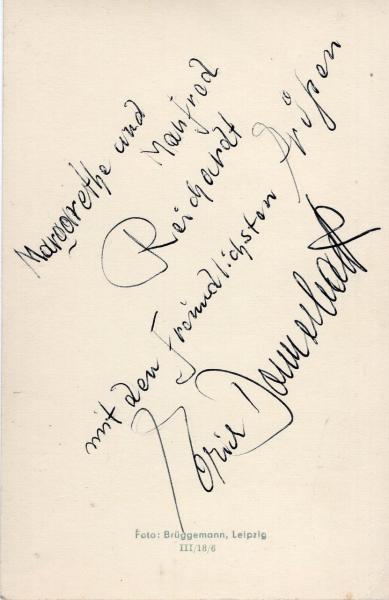 Margarethe und
Manfred
Reichardt
mit den freundlichsten Grüßen
Foto: Brüggemann, Leipzig
III/18/6